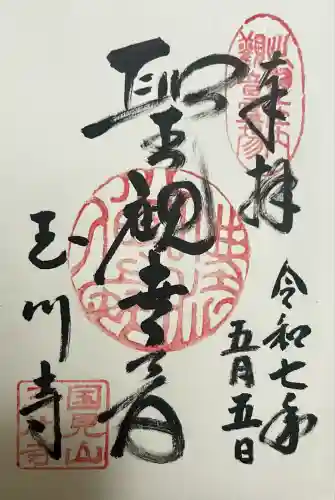 奉拝
令和七年
五月五日
聖観世音
玉川寺
国見山
玉川寺